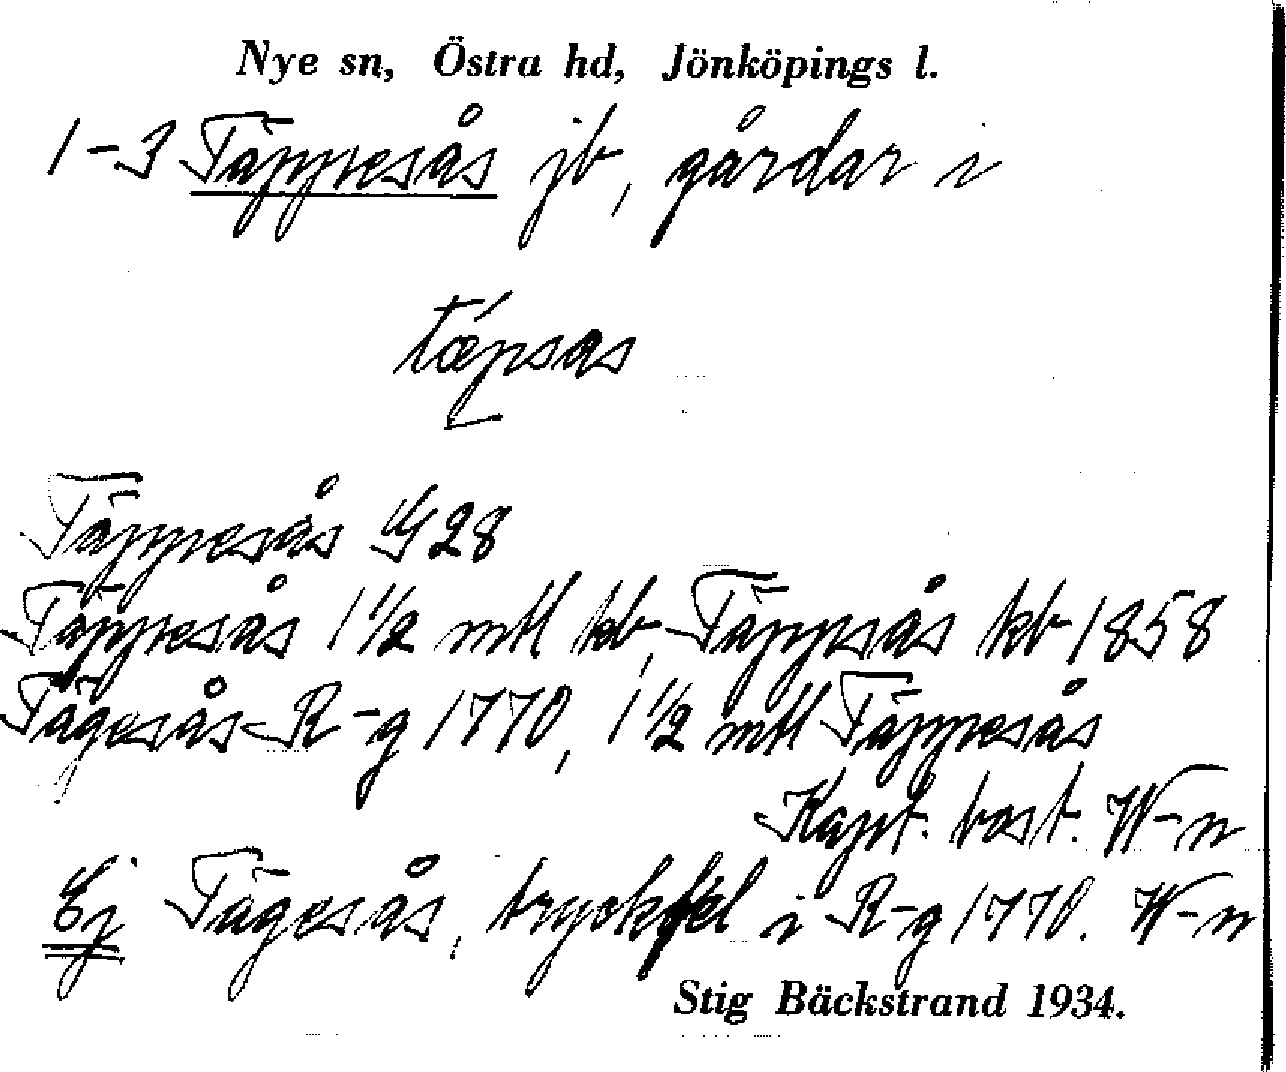 Nye sn, Östra hd, Jönköpings l.
1-3 Täppesås jb, gårdar i
tǽpsas
Täppesås G 28
Täppesås 1 1/2 mtl kb, Täppsås kb 1858
Tägesås R-g 1770, 1 1/2 mtl Täppesås
Kapt. bost. W-n
Ej Tägesås, tryckfel i R-g 1770. W-n
Stig Bäckstrand 1934.